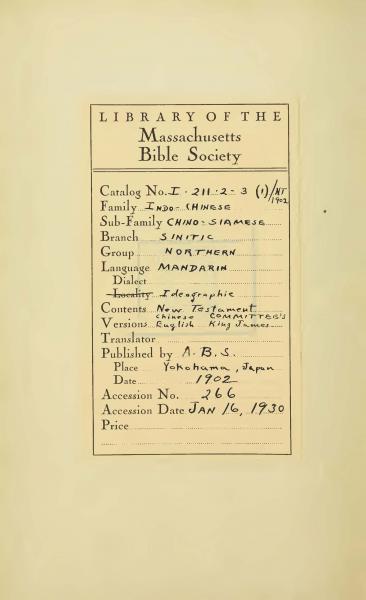 LIBRARY OF THE
Massachusetts
Bible Society
Catalog No. I-211-2-3 (1)/NT 1902
Family INDO-CHINESE
Sub-Family CHINO-SIAMESE
Branch SINITIC
Group NORTHERN
Language MANDARIN
Dialect
Locality Ideographic
Contents New Testament
Chinese COMMITTEE'S
Versions English King James
Translator
Published by A.B.S.
Place Yokohama, Japan
Date 1902
Accession No. 266
Accession Date JAN 16, 1930
Price